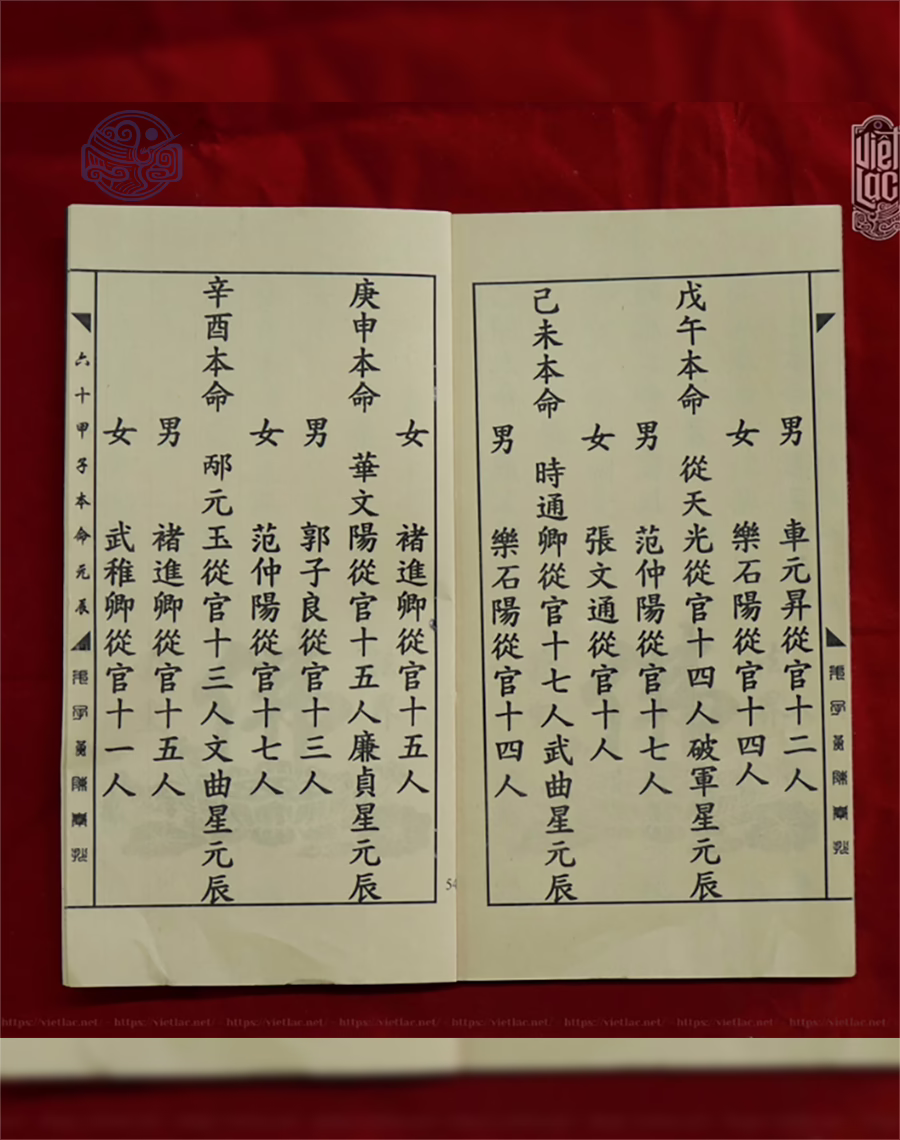 Việt Lạc
男　車元昇從官十二人
女　樂石陽從官十四人
戊午本命　從天光從官十四人破軍星元辰
男　范仲陽從官十七人
女　張文通從官十人
己未本命　時通卿從官十七人武曲星元辰
男　樂石陽從官十四人
女　褚進卿從官十五人
庚申本命　華文陽從官十五人廉貞星元辰
男　郭子良從官十三人
女　范仲陽從官十七人
辛酉本命　邴元玉從官十三人文曲星元辰
男　褚進卿從官十五人
女　武稚卿從官十一人
六十甲子本命元辰
54
https://vietlac.net/ - https://vietlac.net/ - https://vietlac.net/ - https://vietlac.net/ - https://vietlac.net/ - https://vietlac.net/ - https://vietlac.net/ - https://vietlac.net/